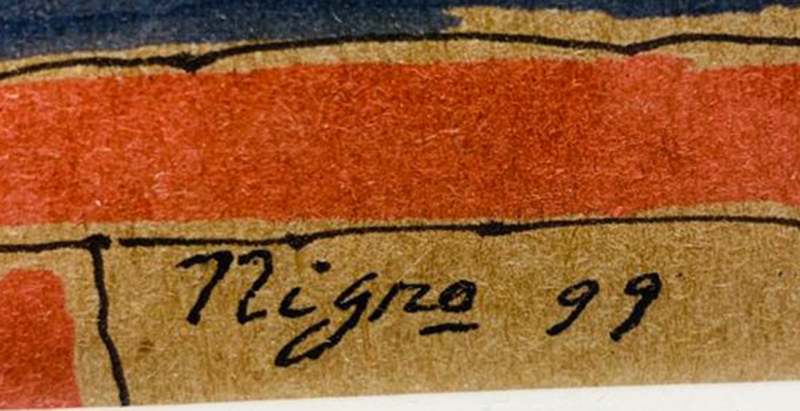 Nigro 99